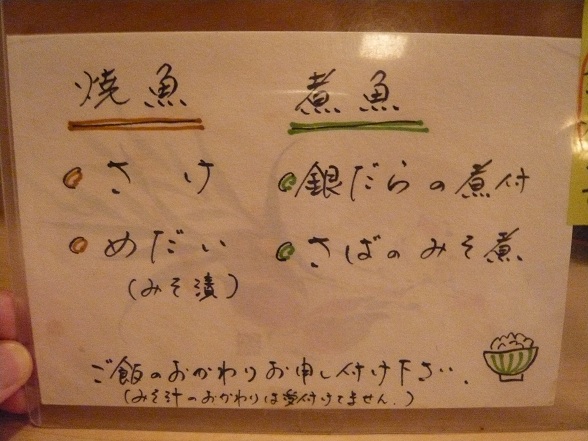 焼魚
さけ
めだい
(みそ漬)
煮魚
銀だらの煮付
さばのみそ煮
ご飯のおかわりお申し付け下さい.
(みそ汁のおかわりは受付けてません.)